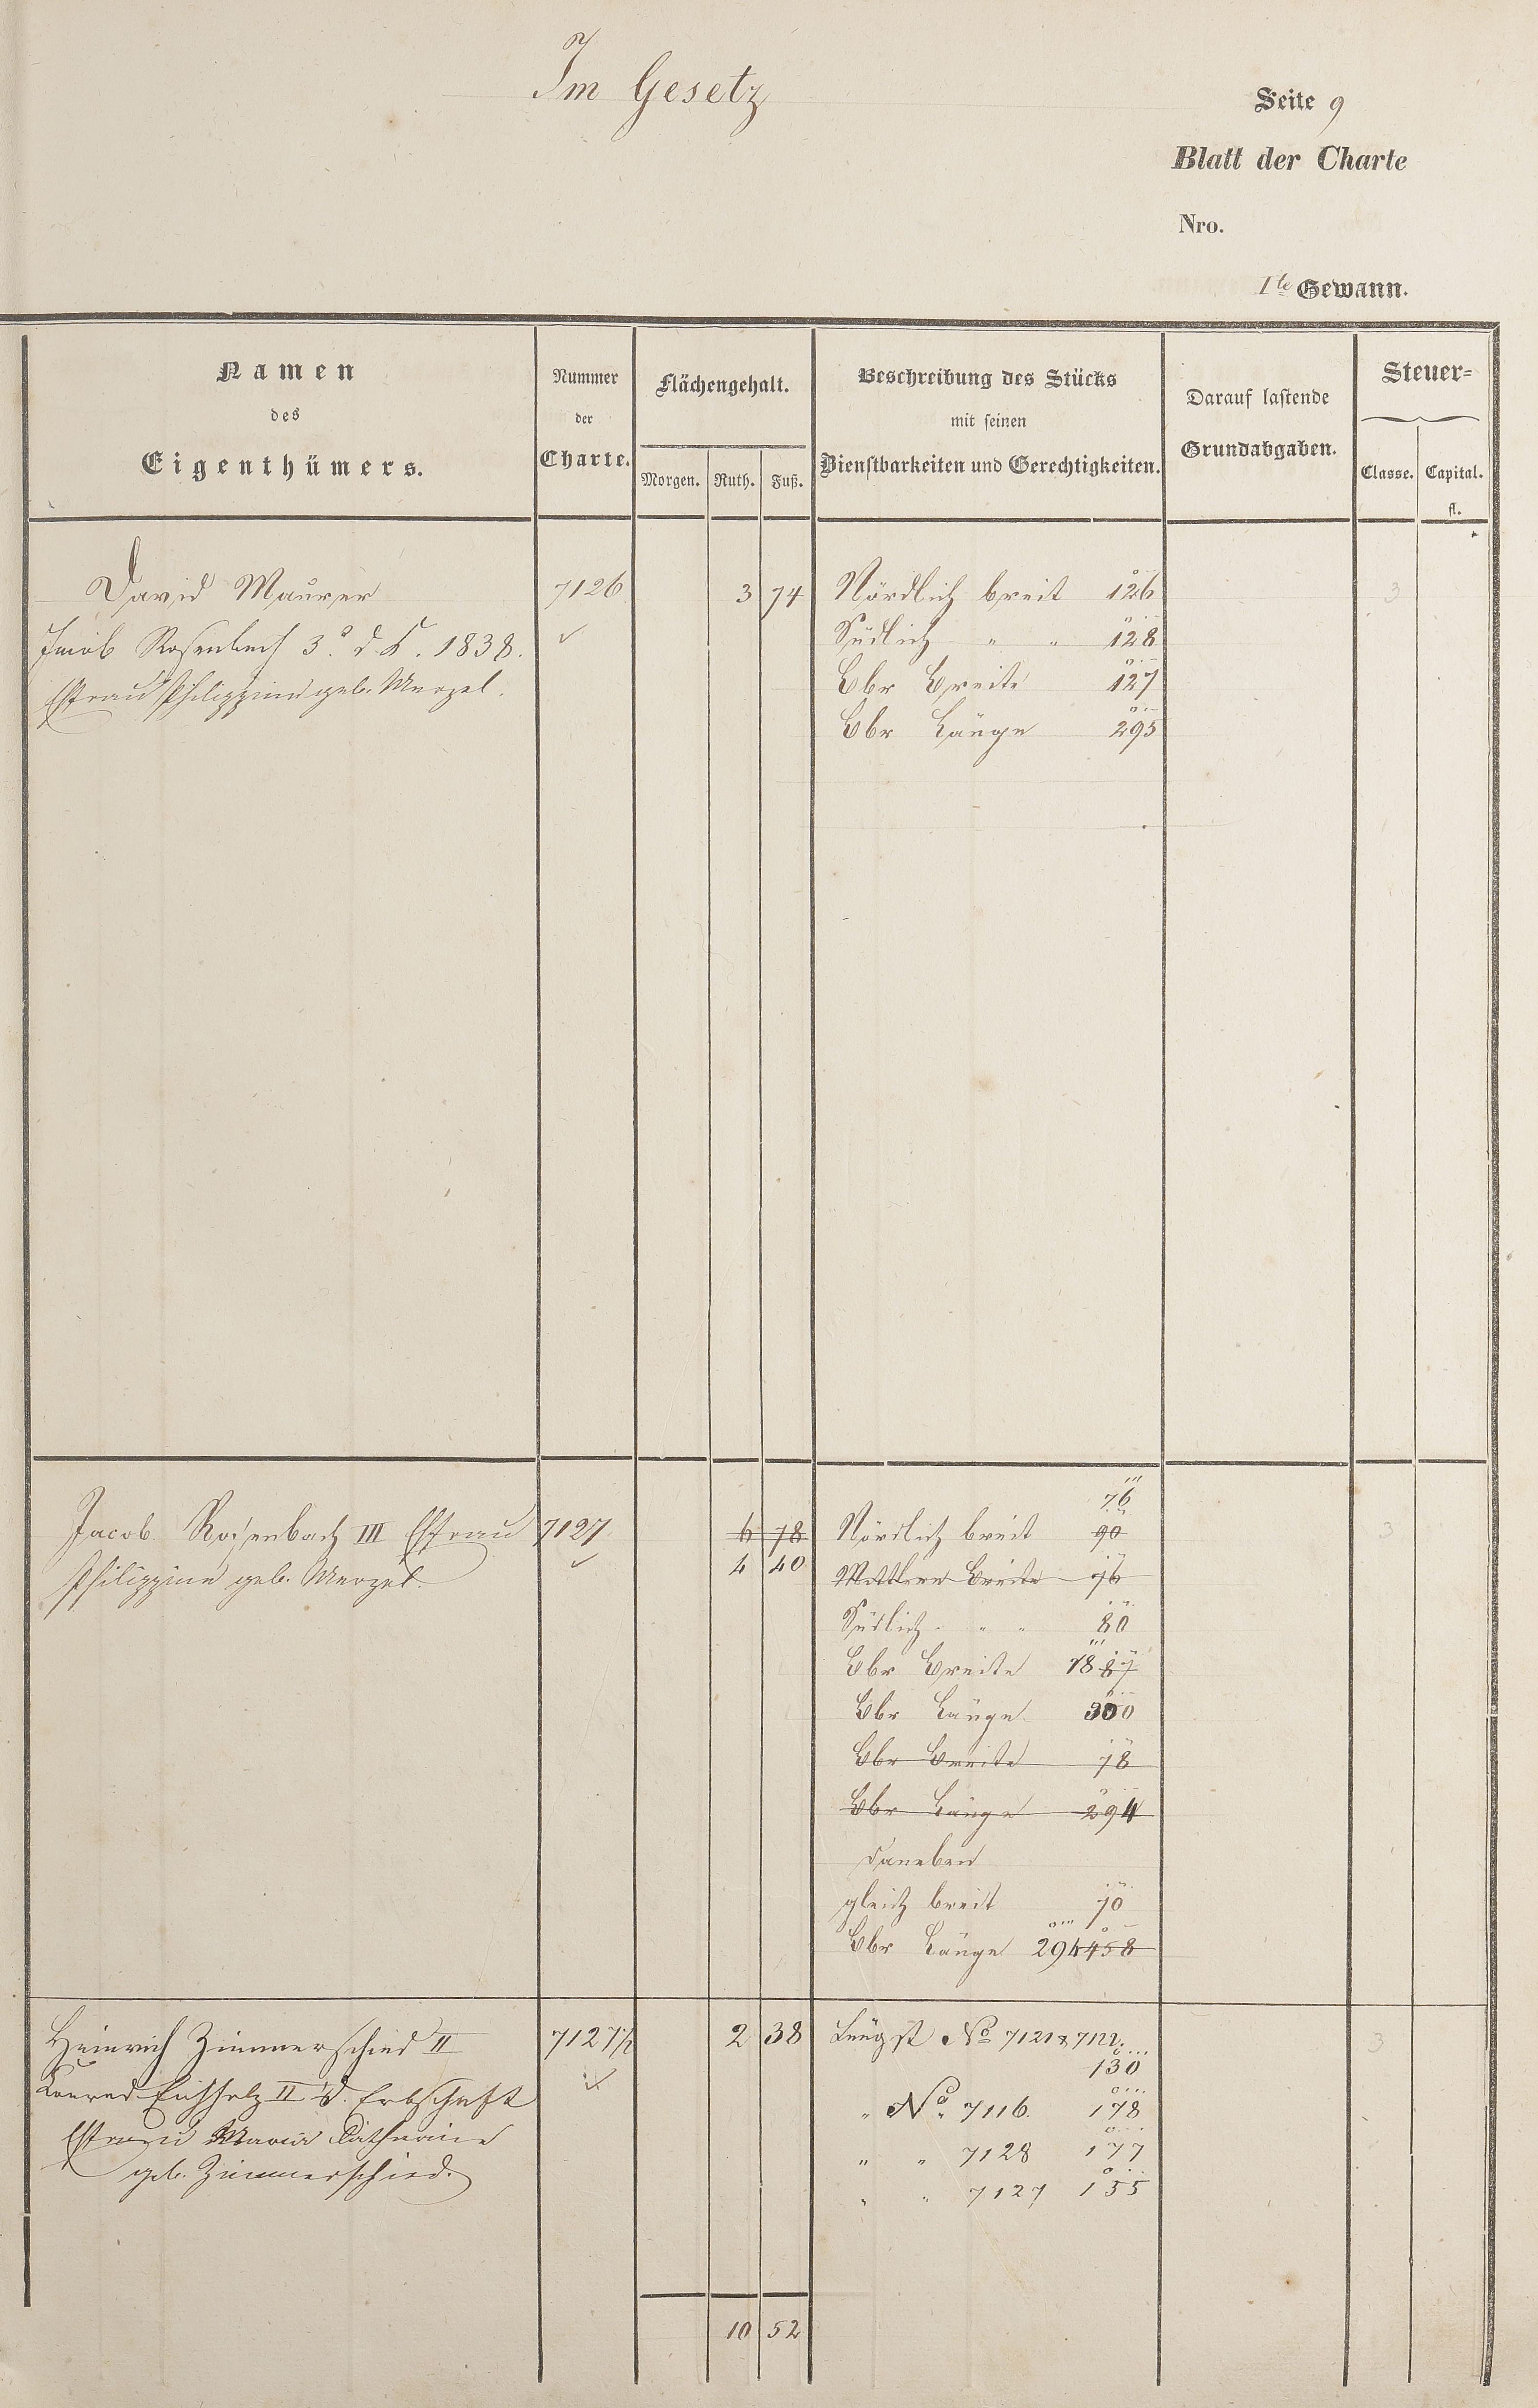 Im Gesetz
Seite 9
Blatt der Charte
Nro.
1te Gewann.
Namen
des
Eigenthümers.
Nummer
der
Charte.
Flächengehalt.
Morgen. Ruth. Fuß.
Beschreibung des Stücks
mit seinen
Dienstbarkeiten und Gerechtigkeiten.
Darauf lastende
Grundabgaben.
Steuer=
Classe. Capital.
fl.
David Maurer 7126 3 74 Nördlich breit 126 3
Jacob Rosenbach 3. d. K. 1838. ✓ Südlich " " 128
Ehfrau Philippine geb. Merzel. Obr Breite 127
Obr Länge 295
76
Jacob Rosenbach III Ehfrau 7127 6 78 Nördlich breit 90 3
Philippine geb. Merzel. ✓ 4 40 Mittlere Breite 76
Südlich " " 80
Obr Breite 78 87
Obr Länge 300
Obr Breite 78
Obr Länge 294
daneben
gleich breit 70
Obr Länge 294 458
Heinrich Zimmerschied II 7127½ 2 38 Längst No 7121 & 7122. 3
130
Konrad Eichholz II d. Erbschaft ✓ " No. 7116. 178
Ehfrau Maria Catharine " " 7128 177
geb. Zimmerschied. " " 7127 155
10 52